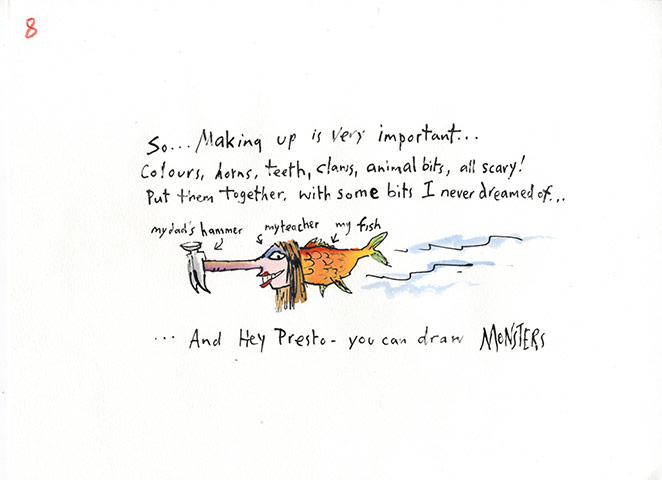 8
So... Making up is very important...
Colours, horns, teeth, claws, animal bits, all scary!
Put them together, with some bits I never dreamed of...
my dad's hammer my teacher my fish
... And Hey Presto - you can draw MONSTERS